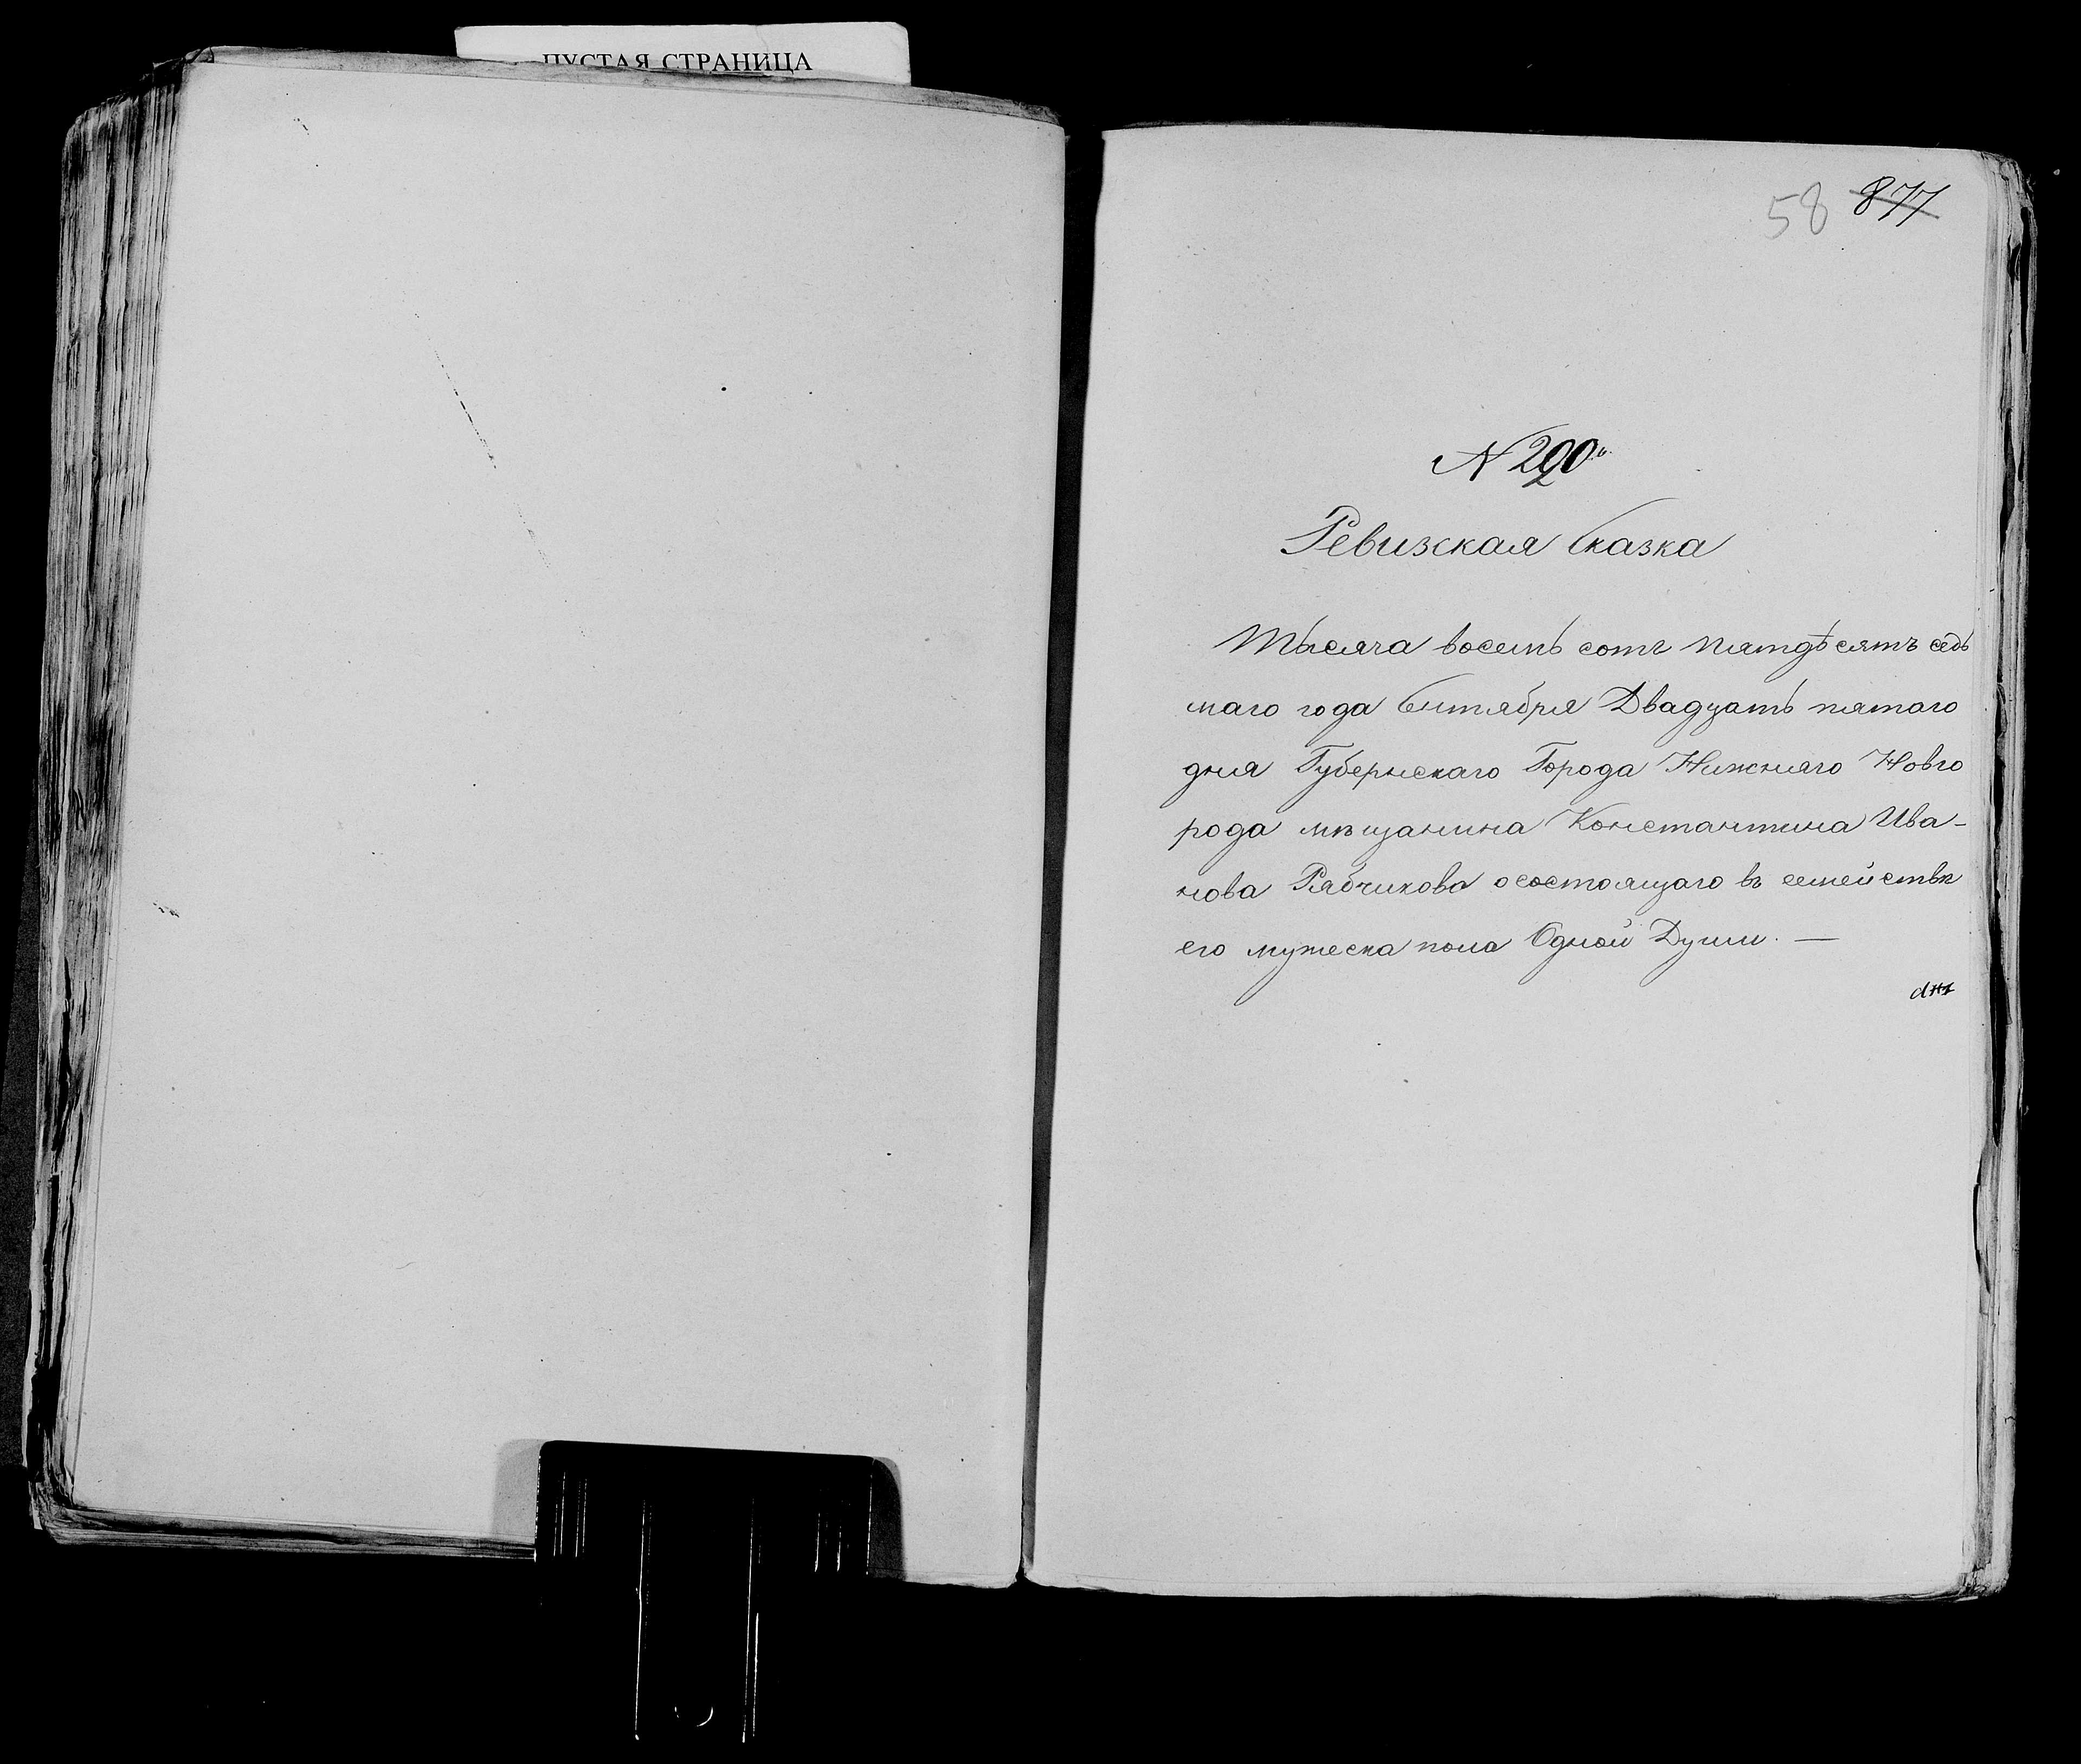 ПУСТАЯ СТРАНИЦА
58 877
N 290.й.
Ревизская Сказка
Тысяча восемь сотъ пятдѣсятъ седь
маго года Сентября Двадцать пятаго
дня Губернскаго Города Нижняго Новго
рода мѣщанина Константина Ива-
нова Рябчикова о состоящаго въ семействѣ
его мужеска пола Одной Души. —